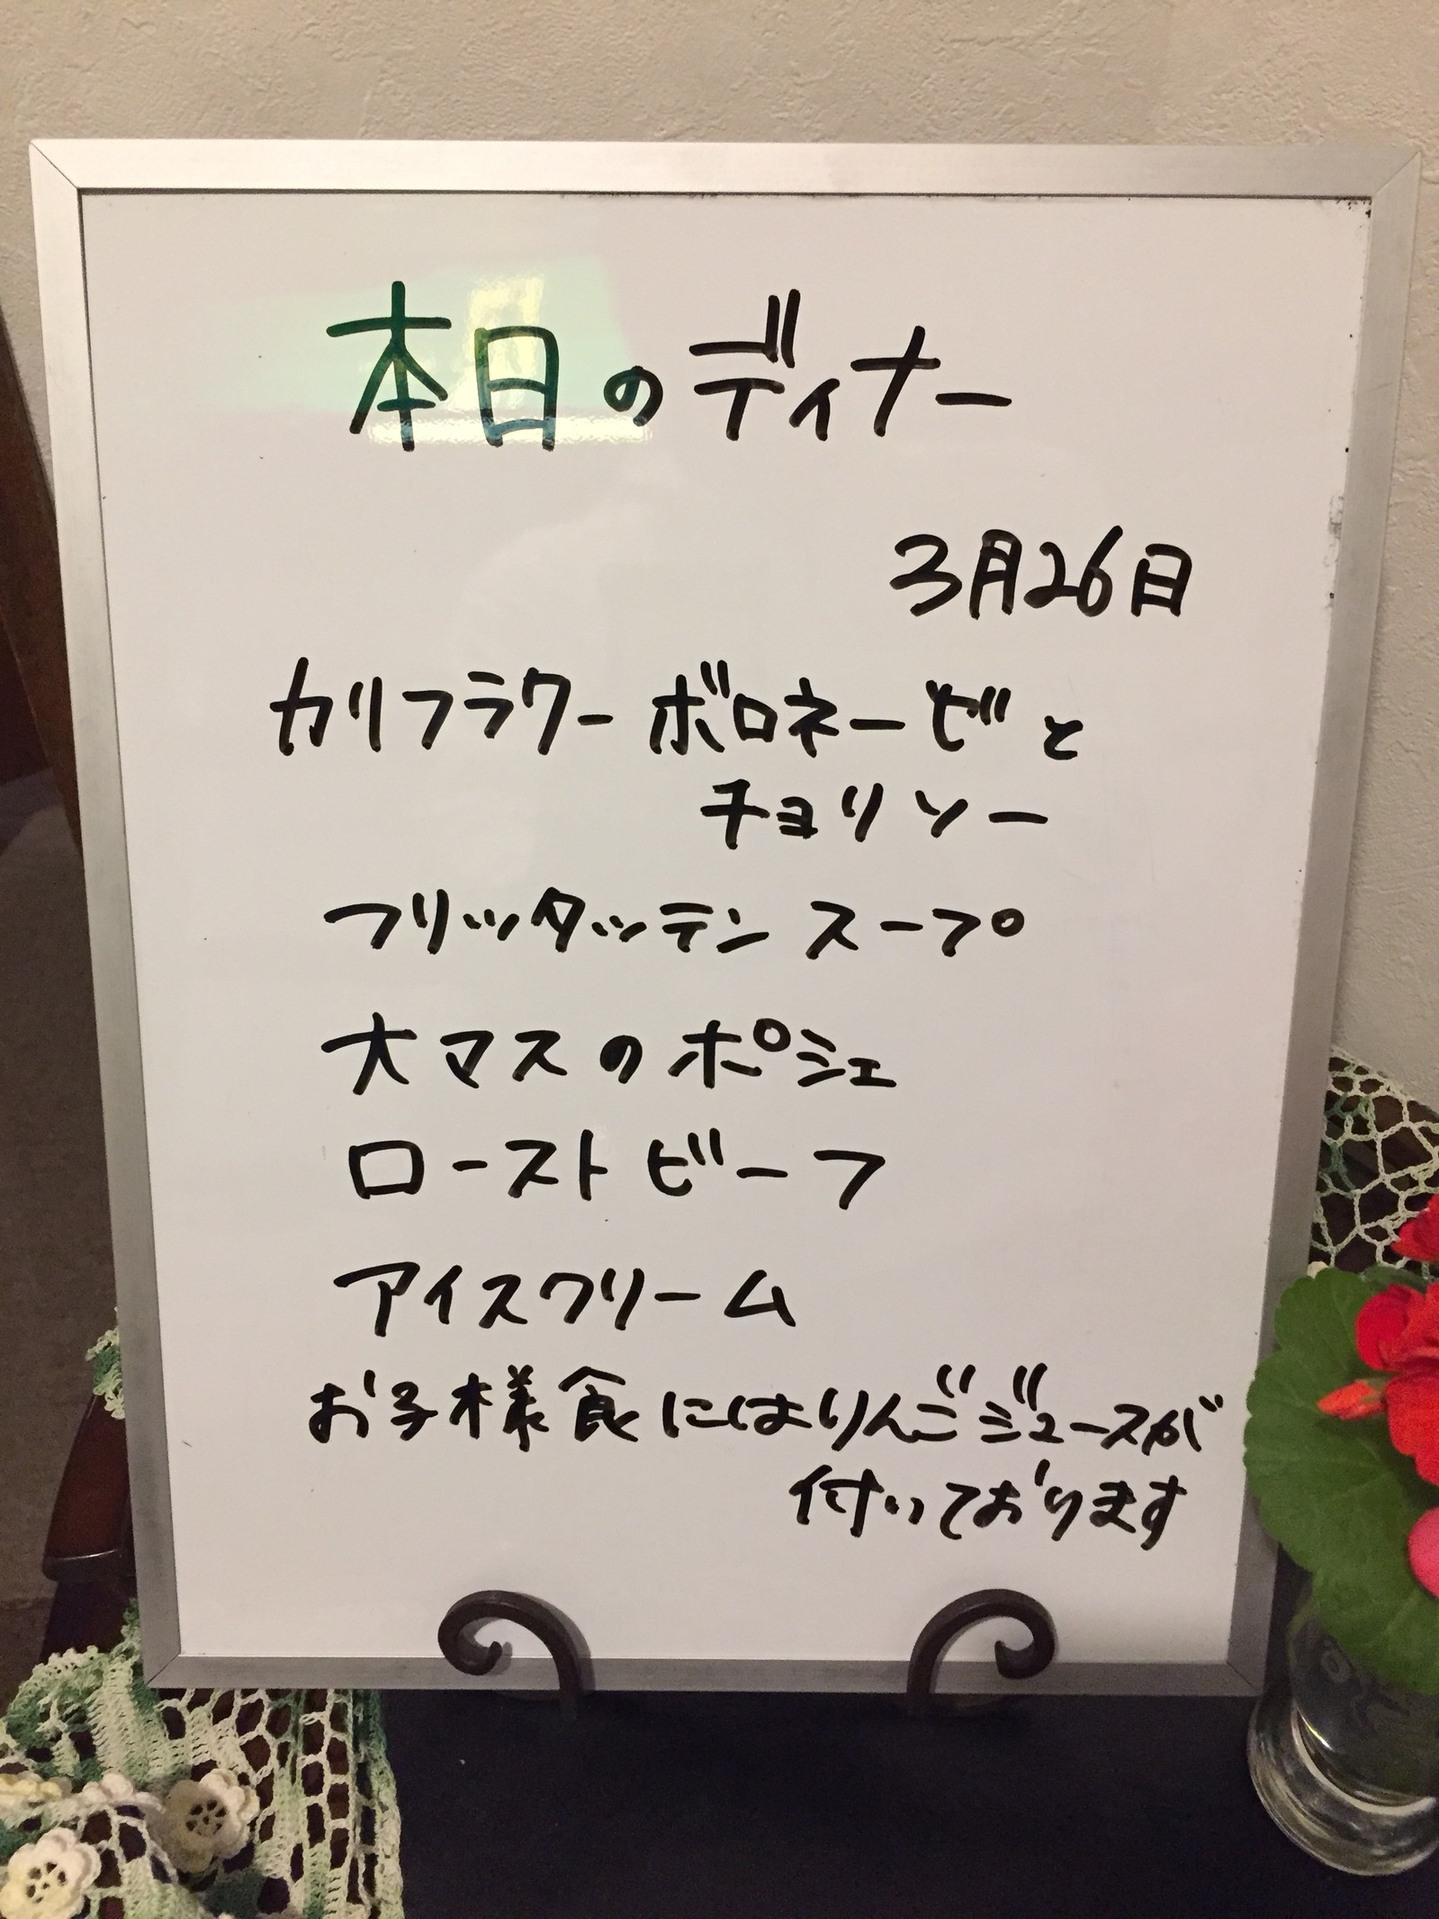 本日のディナー
3月26日
カリフラワー ボロネーゼと
チョリソー
フリッタッテン スープ
大マスのポシェ
ローストビーフ
アイスクリーム
お子様食にはりんごジュースが
付いております